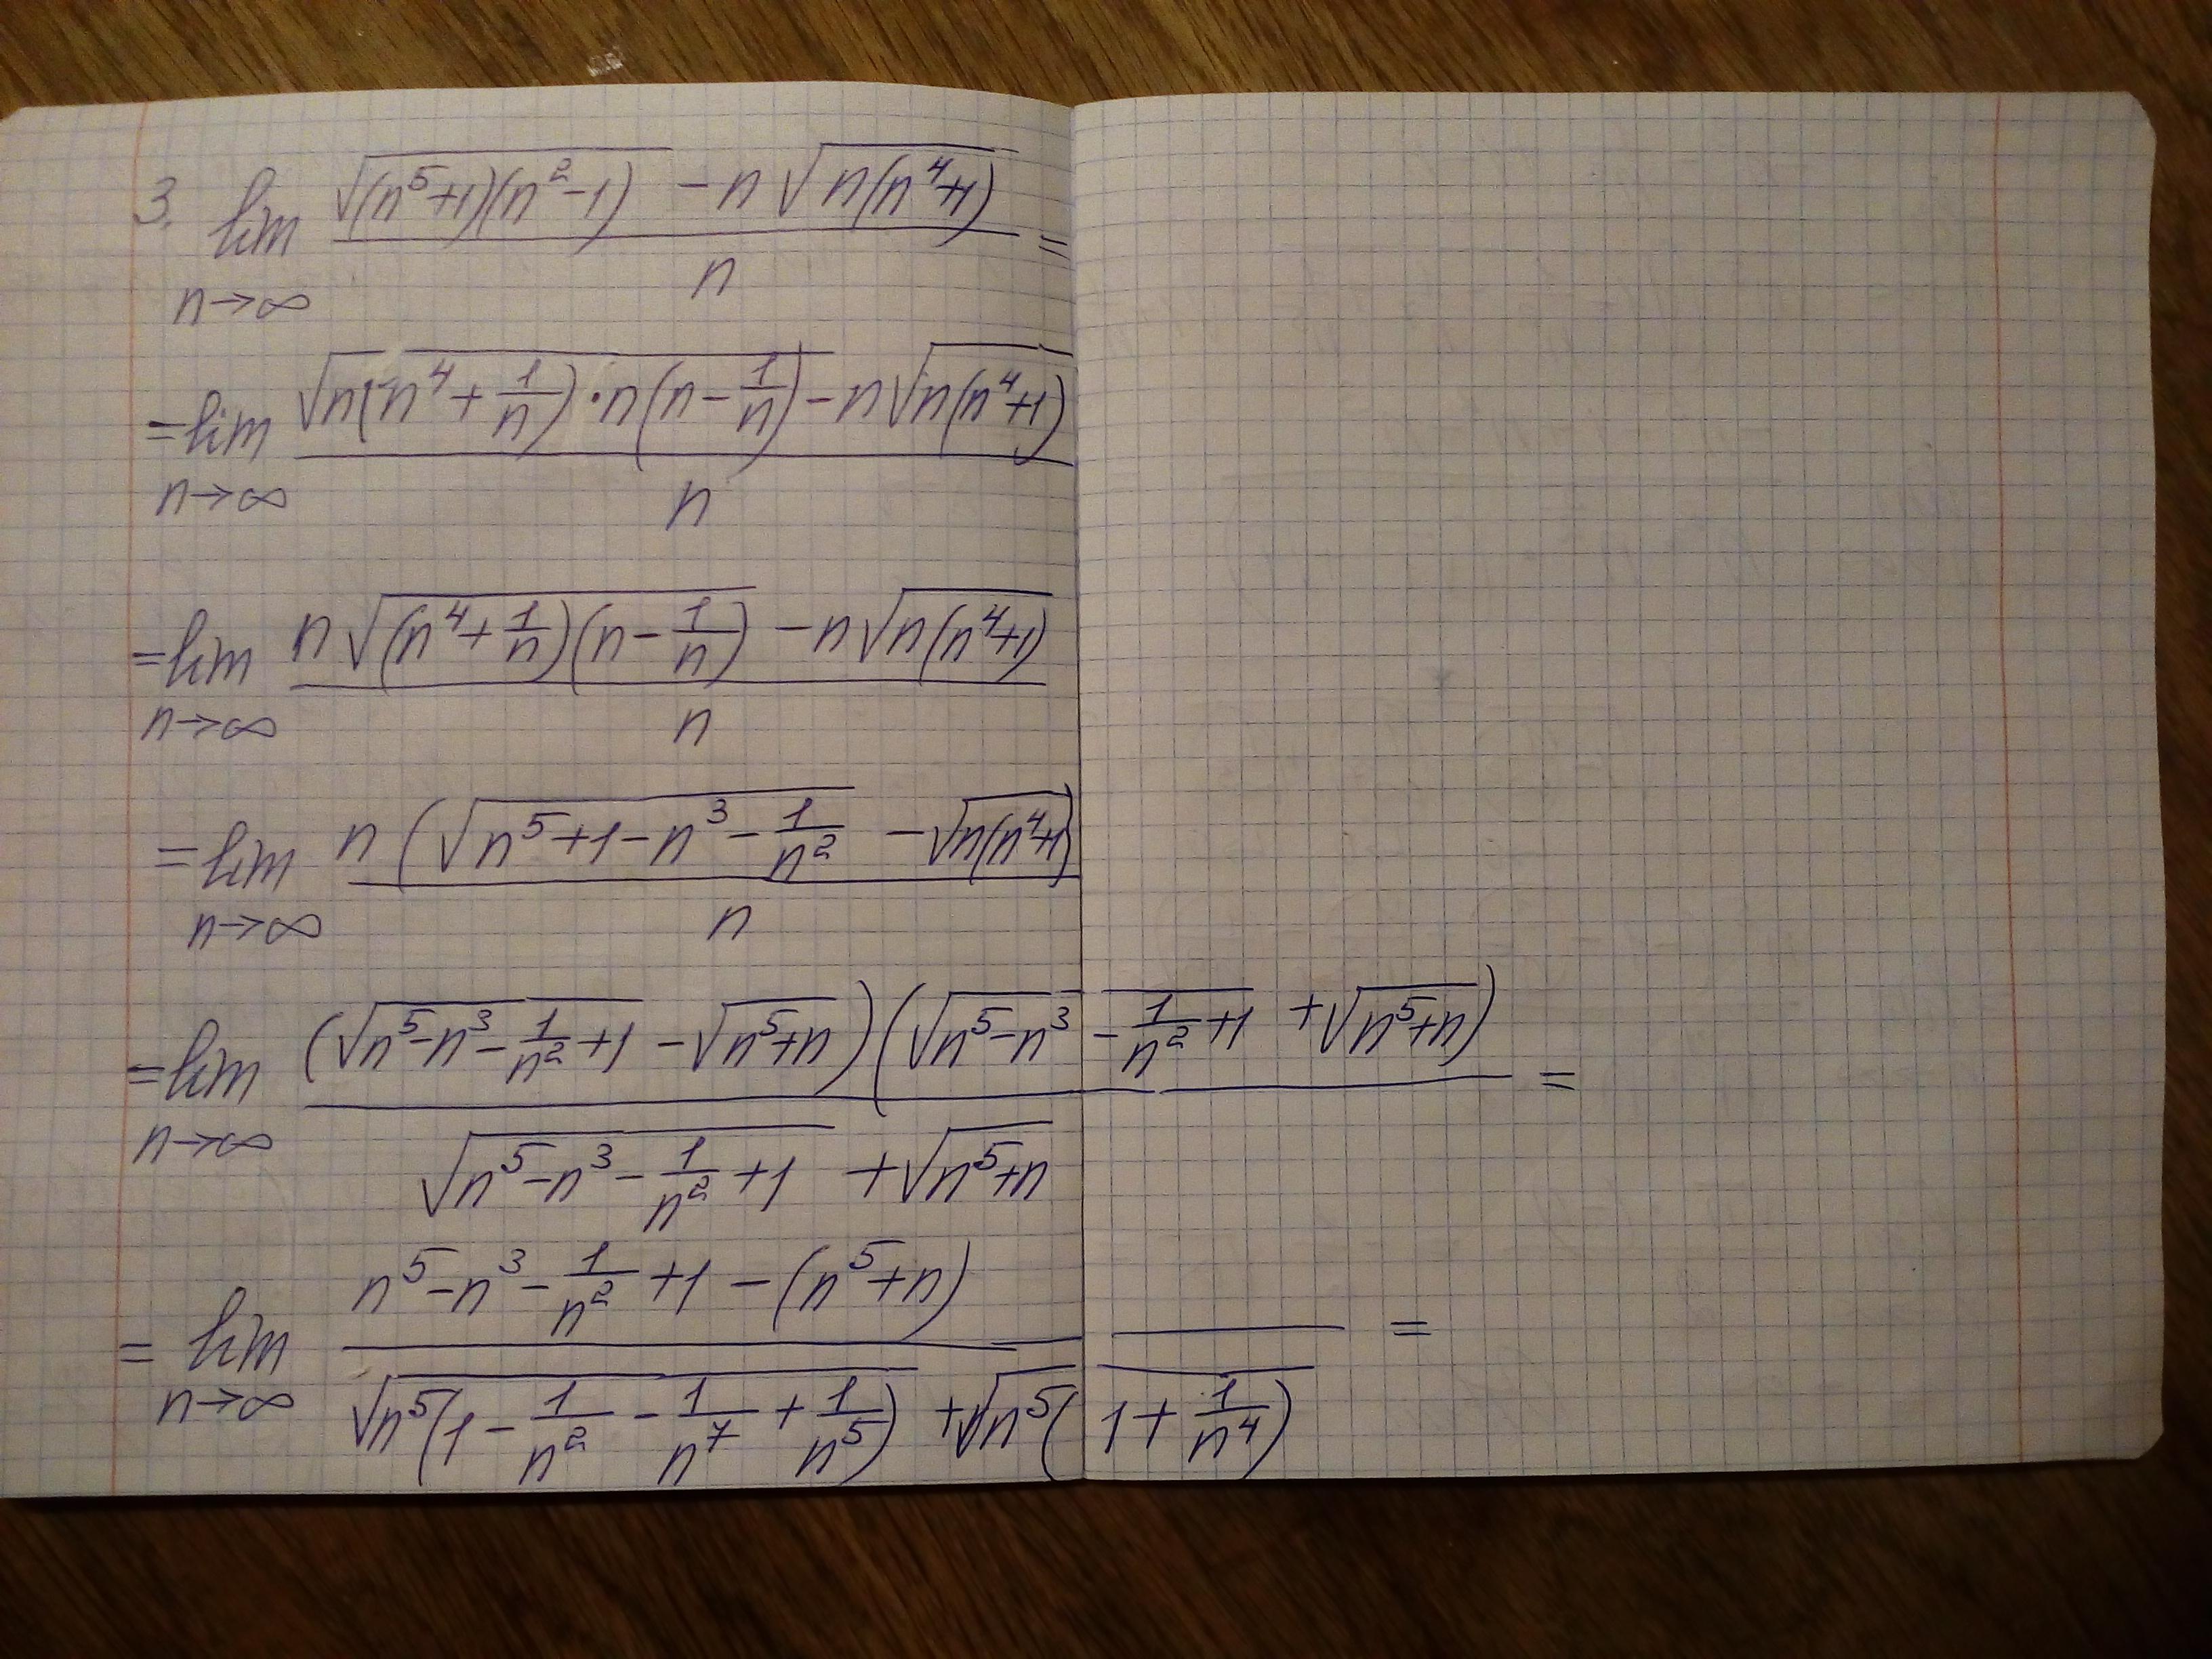 3. lim n→∞ (√((n⁵+1)(n²-1)) - n√(n(n⁴+1))) / n =
= lim n→∞ (√(n(n⁴+1/n)·n(n-1/n)) - n√(n(n⁴+1))) / n
= lim n→∞ (n√((n⁴+1/n)(n-1/n)) - n√(n(n⁴+1))) / n
= lim n→∞ n(√(n⁵+1-n³-1/n²) - √(n(n⁴+1))) / n
= lim n→∞ (√(n⁵-n³-1/n²+1) - √(n⁵+n))(√(n⁵-n³-1/n²+1) + √(n⁵+n)) / (√(n⁵-n³-1/n²+1) + √(n⁵+n)) =
= lim n→∞ (n⁵-n³-1/n²+1-(n⁵+n)) / (√(n⁵(1-1/n²-1/n⁷+1/n⁵)) + √(n⁵(1+1/n⁴))) =